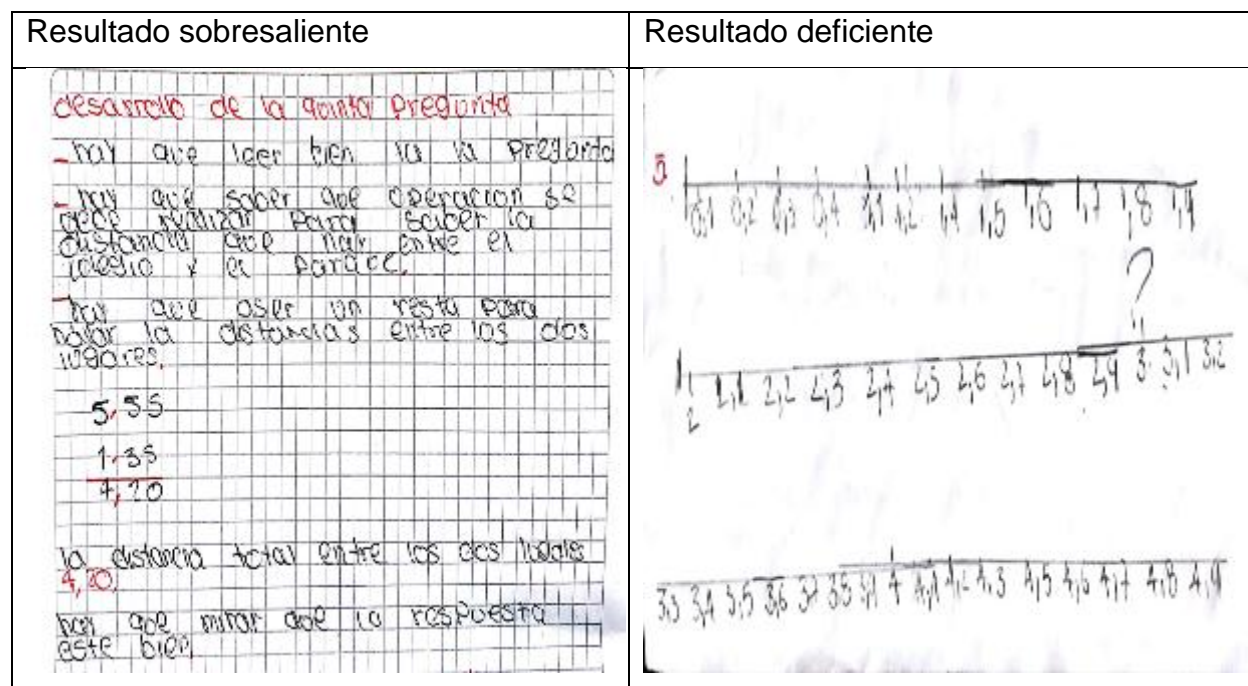 Resultado sobresaliente
Resultado deficiente
desarrollo de la quinta Pregunta
- hay que leer bien la la Pregunta
- hay que saber que operacion se
dece realizar Para saber la
distancia que hay entre el
colegio y el Parque.
- hay que aser un resta para
halar la distancias entre los dos
lugares.
5,55
1,35
4,20
la distancia total entre los dos lugares
4,20.
hay que mirar que la respuesta
este bien
5
0,1 0,2 0,3 0,4 1,1 1,2 1,4 1,5 1,6 1,7 1,8 1,9
?
2 2,1 2,2 2,3 2,4 2,5 2,6 2,7 2,8 2,9 3 3,1 3,2
3,3 3,4 3,5 3,6 3,7 3,8 3,9 4 4,1 4,2 4,3 4,5 4,6 4,7 4,8 4,9